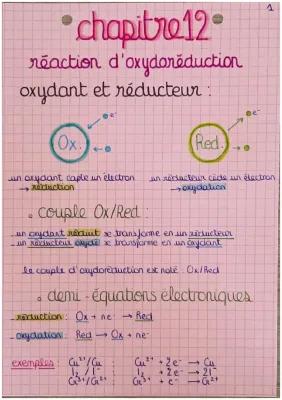 1
chapitre 12
réaction d'oxydoréduction
oxydant et réducteur :
e⁻ e⁻
Ox. Red.
un oxydant capte un électron un réducteur cède un électron
→ réduction → oxydation
couple Ox/Red :
un oxydant réduit se transforme en un réducteur
un réducteur oxydé se transforme en un oxydant
le couple d'oxydoréduction est noté : Ox/Red
demi-équations électroniques
réduction : Ox + ne⁻ → Red
oxydation : Red → Ox + ne⁻
exemples : Cu²⁺/Cu : Cu²⁺ + 2e⁻ → Cu
I₂/I⁻ : I₂ + 2e⁻ → 2I⁻
Cr³⁺/Cr²⁺ : Cr³⁺ + e⁻ → Cr²⁺